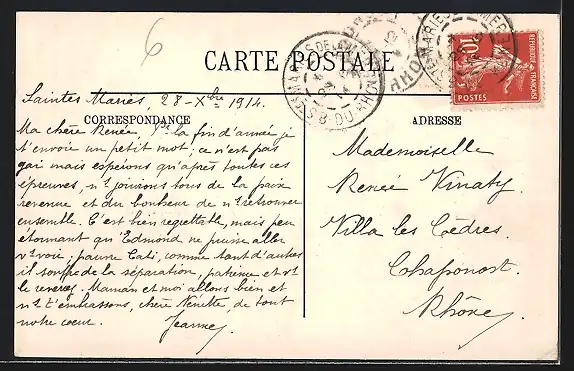 6
CARTE POSTALE
REPUBLIQUE FRANÇAISE
10c
POSTES
Saintes Maries, 28 - Xbre 1914.
CORRESPONDANCE
ADRESSE
Ma chère Renée, la fin d'année je
t'envoie un petit mot; ce n'est pas
gai mais espérons qu'après toutes ces
épreuves, ns jouirons tous de la paix
revenue et du bonheur de ns retrouver
ensemble. C'est bien regrettable, mais peu
étonnant qu'Edmond ne puisse aller
vs voir, pauvre Cati, comme tant d'autres
il souffre de la séparation, patience et vs
le reverrez. Maman et moi allons bien et
ns t'embrassons, chère Nénette, de tout
notre coeur. Jeanne
Mademoiselle
Renée Vinaty
Villa les Cèdres.
Chaponost.
Rhône